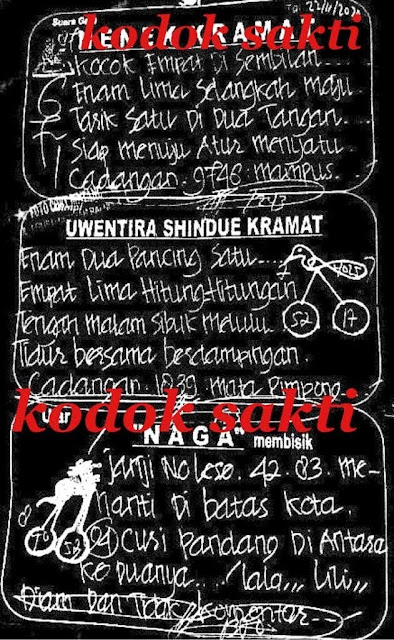 Suara
22/11/20
KRAMAT
kodok sakti
Kocok Empat Di Sembilan
6 Enam Lima Selangkah maju
7 Tarik Satu Di Dua Tangan...
1 Siap menuju Atur menyatu
Cadangan. 9746. mampus.
UWENTIRA SHINDUE KRAMAT
Enam Dua Pancing Satu....
Empat Lima Hitung-Hitungan
Tengah malam Sibuk melulu
52 17
Tidur bersama berdampingan.
Cadangan. 1839. mata Pimpong
kodok sakti
"NAGA" membisik
Janji No Leso. 42. 83. me-
nanti Di batas kota.
Curi Pandang Di Antara
Ke Duanya.... lala,,, Lili,,,
Diam Dan Tidak Komentar--